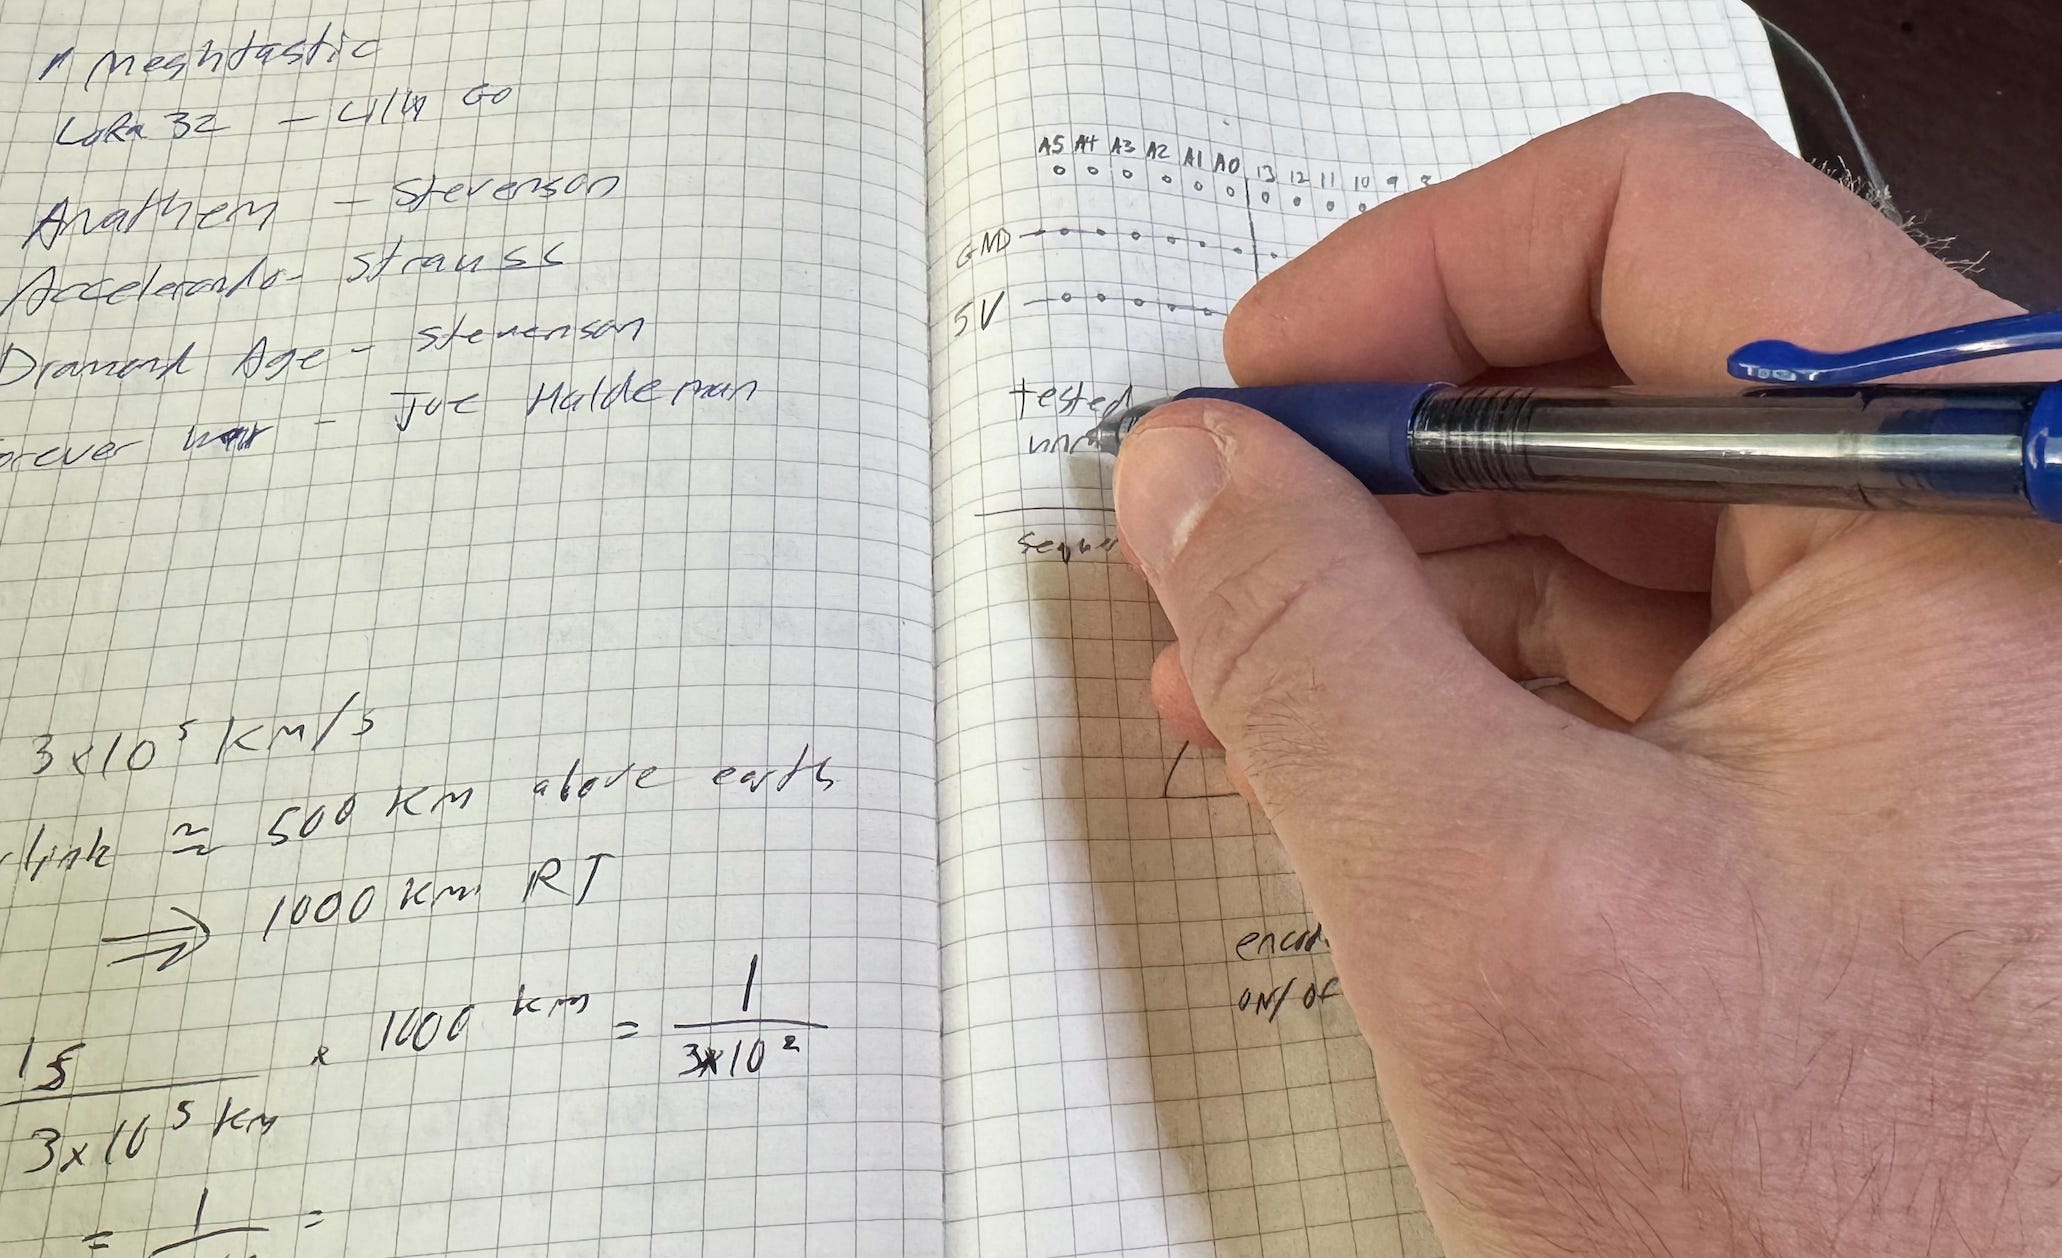 Meshtastic
LoRa 32 - Lily Go
Anathem - Stevenson
Accelerando - Strauss
Diamond Age - Stevenson
orever war - Joe Haldeman
3x10⁵ km/s
link ≈ 500 km above earth
⇒ 1000 km RT
1s / 3x10⁵ km x 1000 km = 1 / 3x10²
= 1 =
A5 A4 A3 A2 A1 A0 13 12 11 10 9
GND
5V
tested
encod
ON/OF